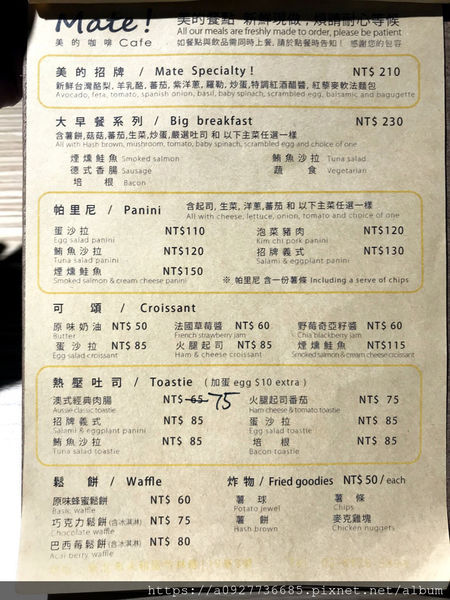 Mate!
美的咖啡 Cafe
美的餐點 新鮮現做，煩請耐心等候
All our meals are freshly made to order, please be patient
如餐點與飲品需同時上餐, 請於點餐時告知！ 感謝您的包容
美的招牌 / Mate Specialty ! NT$ 210
新鮮台灣酪梨, 羊乳酪, 蕃茄, 紫洋蔥, 羅勒, 炒蛋,特調紅酒醋醬, 紅藜麥軟法麵包
Avocado, feta, tomato, spanish onion, basil, baby spinach, scrambled egg, balsamic and bagugette
大早餐系列 / Big breakfast NT$ 230
含薯餅,菇菇,蕃茄,生菜,炒蛋,嚴選吐司 和 以下主菜任選一樣
All with Hash brown, mushroom, tomato, baby spinach, scrambled egg and choice of one
煙燻鮭魚 Smoked salmon 鮪魚沙拉 Tuna salad
德式香腸 Sausage 蔬食 Vegetarian
培根 Bacon
帕里尼 / Panini 含起司, 生菜, 洋蔥, 蕃茄 和 以下主菜任選一樣
All with cheese, lettuce, onion, tomato and choice of one
蛋沙拉 NT$110 泡菜豬肉 NT$120
Egg salad panini Kim chi pork panini
鮪魚沙拉 NT$120 招牌義式 NT$130
Tuna salad panini Salami & eggplant panini
煙燻鮭魚 NT$150
Smoked salmon & cream cheese panini ※ 帕里尼 含一份薯條 Including a serve of chips
可頌 / Croissant
原味奶油 NT$ 50 法國草莓醬 NT$ 60 野莓奇亞籽醬 NT$ 60
Butter French strawberry jam Chia blackberry jam
蛋沙拉 NT$ 85 火腿起司 NT$ 85 煙燻鮭魚 NT$115
Egg salad croissant Ham & cheese croissant Smoked salmon & cream cheese croissant
熱壓吐司 / Toastie (加蛋 egg $10 extra)
澳式經典肉腸 NT$ 65 75 火腿起司番茄 NT$ 75
Aussie classic toastie Ham cheese & tomato toastie
招牌義式 NT$ 85 蛋沙拉 NT$ 85
Salami & eggplant panini Egg salad toastie
鮪魚沙拉 NT$ 85 培根 NT$ 85
Tuna salad toastie Bacon toastie
鬆餅 / Waffle 炸物 / Fried goodies NT$ 50 / each
原味蜂蜜鬆餅 NT$ 60 薯球 薯條
Basic waffle Potato jewel Chips
巧克力鬆餅(含冰淇淋) NT$ 75 薯餅 麥克雞塊
Chocolate waffle Hash brown Chicken nuggets
巴西莓鬆餅(含冰淇淋) NT$ 80
Acai berry waffle
https://a0927736685.pixnet.net/album